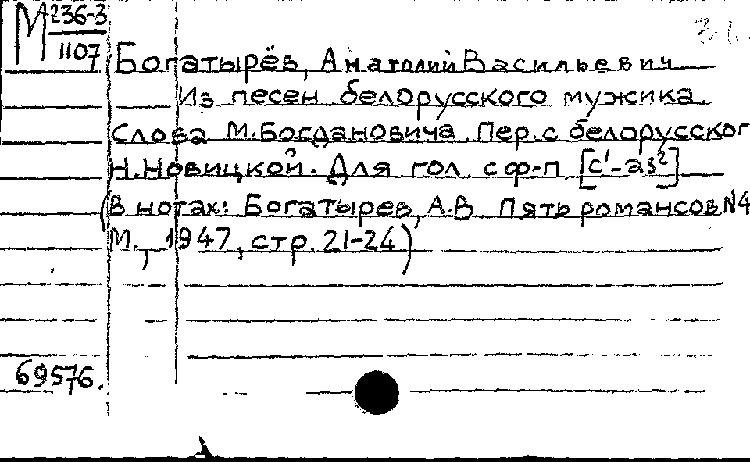 М 236-3
1107
Богатырёв, Анатолий Васильевич
Из песен белорусского мужика
Слова М.Богдановича. Пер. с белорусског
Н.Новицкой. Для гол. с ф-п [c¹-as²]
(В нотах: Богатырев, А.В. Пять романсов №4
М., 1947, стр. 21-24)
69576.